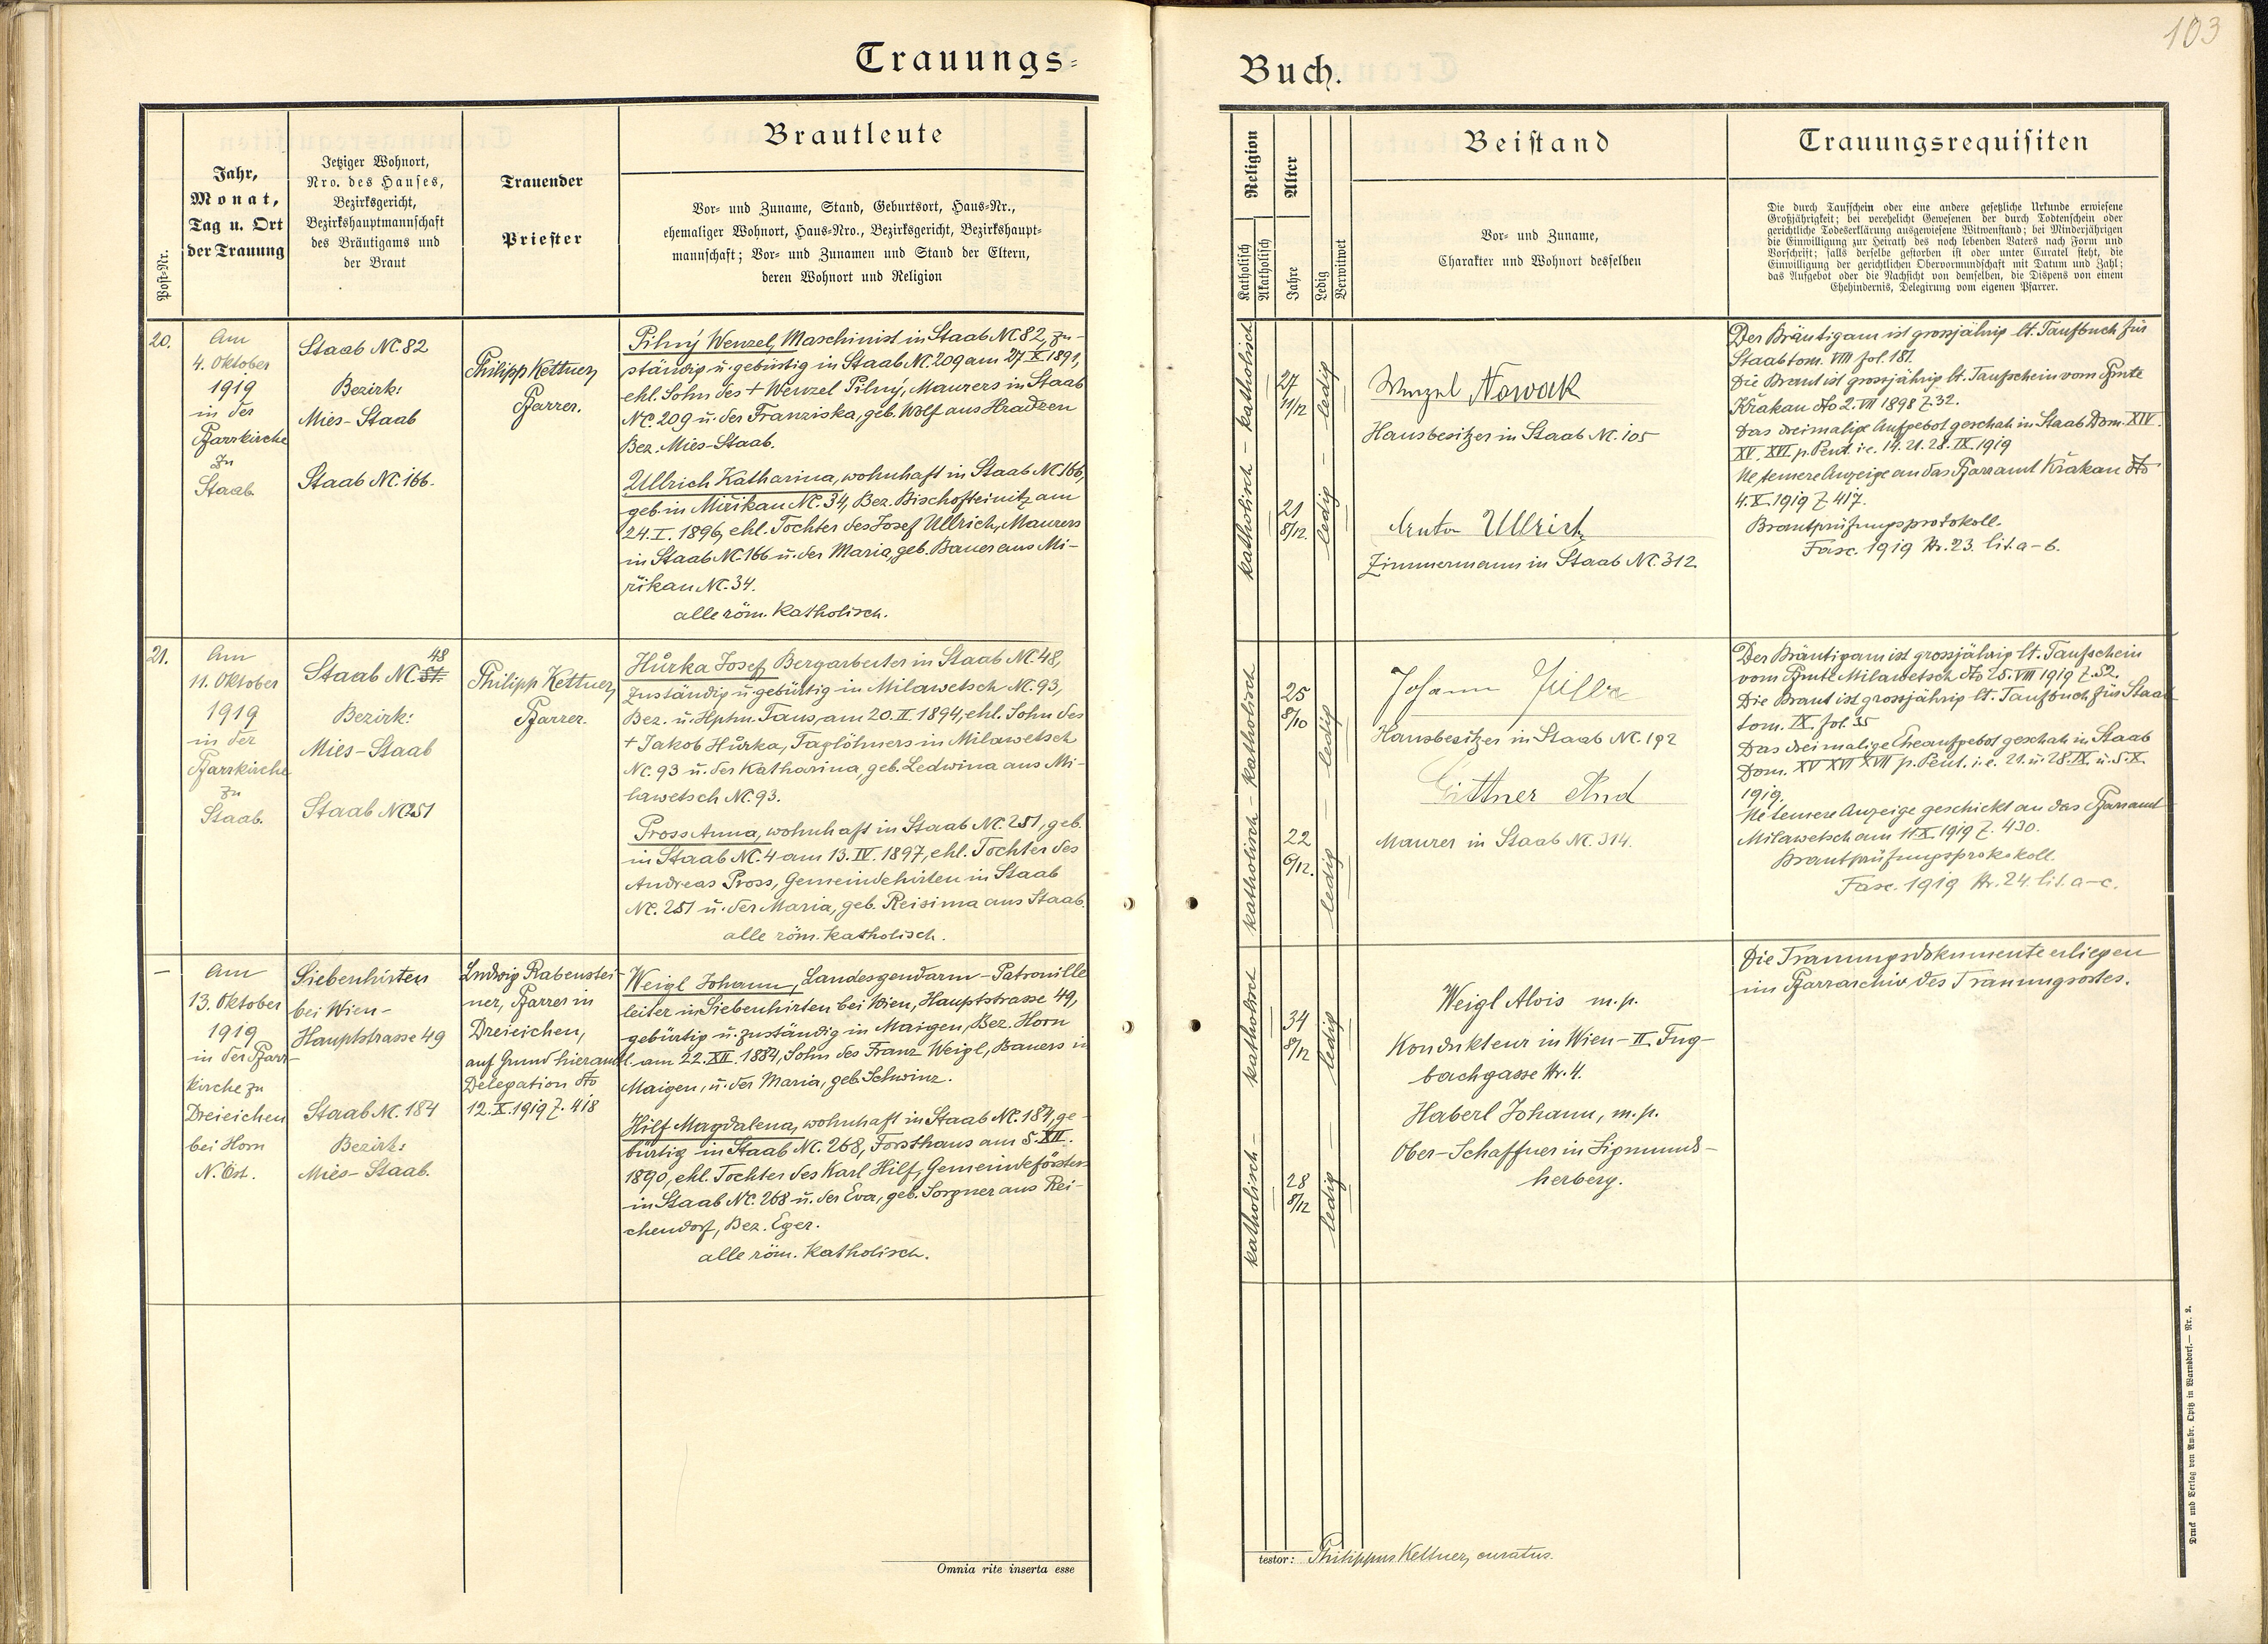 103
Trauungs-
Buch.
Post-Nr.
Jahr,
Monat,
Tag u. Ort
der Trauung
Jetziger Wohnort,
Nro. des Hauses,
Bezirksgericht,
Bezirkshauptmannschaft
des Bräutigams und
der Braut
Trauender
Priester
Brautleute
Vor- und Zuname, Stand, Geburtsort, Haus-Nr.,
ehemaliger Wohnort, Haus-Nro., Bezirksgericht, Bezirkshaupt-
mannschaft; Vor- und Zunamen und Stand der Eltern,
deren Wohnort und Religion
Religion
Katholisch
Akatholisch
Alter
Jahre
Ledig
Verwitwet
Beistand
Vor- und Zuname,
Charakter und Wohnort desselben
Trauungsrequisiten
Die durch Taufschein oder eine andere gesetzliche Urkunde erwiesene
Großjährigkeit; bei verehelicht Gewesenen der durch Todtenschein oder
gerichtliche Todeserklärung ausgewiesene Witwenstand; bei Minderjährigen
die Einwilligung zur Heirath des noch lebenden Vaters nach Form und
Vorschrift; falls derselbe gestorben ist oder unter Curatel steht, die
Einwilligung der gerichtlichen Obervormundschaft mit Datum und Zahl;
das Aufgebot oder die Nachsicht von demselben, die Dispens von einem
Ehehindernis, Delegirung vom eigenen Pfarrer.
20.
Am
4. Oktober
1919
in der
Pfarrkirche
zu
Staab.
Staab NC. 82
Bezirk:
Mies-Staab
Staab NC. 166.
Philipp Kettner,
Pfarrer.
Pilný Wenzel, Maschinist in Staab NC 82, zu-
ständig u. gebürtig in Staab NC. 209 am 27. X. 1891,
ehl. Sohn des + Wenzel Pilný, Maurers in Staab
NC. 209 u. der Franziska, geb. Wolf aus Hradzen
Bez. Mies-Staab.
Ullrich Katharina, wohnhaft in Staab NC 166,
geb. in Mirikau NC. 34, Bez. Bischofteinitz am
24. I. 1896, ehl. Tochter des Josef Ullrich, Maurers
in Staab NC 166 u. der Maria, geb. Bauer aus Mi-
rikau NC. 34.
alle röm. katholisch.
katholisch - katholisch
27
11/12
21
8/12.
ledig - ledig
Wenzel Nowak
Hausbesitzer in Staab NC. 105
Anton Ullrich
Zimmermann in Staab NC. 312
Der Bräutigam ist grossjährig lt. Taufbuch für
Staab tom. VIII fol. 181.
Die Braut ist grossjährig lt. Taufschein vom Pfmte
Křakau dto 2. VII 1898 Z. 32.
Das dreimalige Aufgebot geschah in Staab Dom. XIV.
XV. XVI. p. Pent. i. e. 14. 21. 28. IX. 1919
Ne temere Anzeige an das Pfarramt Křakau dto
4. X. 1919 Z. 417.
Brautprüfungsprotokoll.
Fasc. 1919 Nr. 23. lit. a-b.
21.
Am
11. Oktober
1919
in der
Pfarrkirche
zu
Staab.
48
Staab NC. 51.
Bezirk:
Mies-Staab
Staab NC 251
Philipp Kettner,
Pfarrer.
Hůrka Josef, Bergarbeiter in Staab NC. 48,
zuständig u. gebürtig in Milawetsch NC. 93,
Bez. u. Hphm. Taus, am 20. II. 1894, ehl. Sohn des
+ Jakob Hůrka, Taglöhners in Milawetsch
NC. 93 u. der Katharina, geb. Ledwina aus Mi-
lawetsch NC. 93.
Pross Anna, wohnhaft in Staab NC. 251, geb.
in Staab NC. 4 am 13. IV. 1897, ehl. Tochter des
Andreas Pross, Gemeindehirten in Staab
NC. 251 u. der Maria, geb. Reisima aus Staab.
alle röm. katholisch.
katholisch - katholisch
25
8/10
22
6/12.
ledig - ledig
Johann
Hausbesitzer in Staab NC. 192
Gittner And
Maurer in Staab NC. 314.
Der Bräutigam ist grossjährig lt. Taufschein
vom Pfmte Milawetsch dto 25. VIII 1919 Z. 52.
Die Braut ist grossjährig lt. Taufbuch für Staab
tom. IX. fol. 35
Das dreimalige Eheaufgebot geschah in Staab
Dom. XV XVI XVII p. Pent. i. e. 21. u. 28. IX. u. 5. X.
1919.
Ne temere Anzeige geschickt an das Pfarramt
Milawetsch am 11. X. 1919 Z. 430.
Brautprüfungsprokokoll.
Fasc. 1919 Nr. 24. lit. a-c.
—
Am
13. Oktober
1919
in der Pfarr-
kirche zu
Dreieichen
bei Horn
N. Öst.
Siebenhirten
bei Wien-
Hauptstrasse 49
Staab NC. 184
Bezirk:
Mies-Staab.
Ludwig Rabenstei-
ner, Pfarrer in
Dreieichen,
auf Grund hieramtl.
Delegation dto
12. X. 1919 Z. 418
Weigl Johann, Landesgendarm-Patrouille
leiter in Siebenhirten bei Wien, Hauptstrasse 49,
gebürtig u. zuständig in Maigen, Bez. Horn
am 22. XII. 1884, Sohn des Franz Weigl, Bauers in
Maigen, u. der Maria, geb. Schwinz.
Hilf Magdalena, wohnhaft in Staab NC. 184, ge-
bürtig in Staab NC. 268, Forsthaus am 5. XII.
1890, ehl. Tochter des Karl Hilf, Gemeindeförsters
in Staab NC. 268 u. der Eva, geb. Sorgner aus Rei-
chendorf, Bez. Eger.
alle röm. katholisch.
katholisch - katholisch
34
8/12
28
8/12
ledig - ledig
Weigl Alois m. p.
Kondukteur in Wien-II. Fug-
bachgasse Nr. 4.
Haberl Johann, m. p.
Ober-Schaffner in Sigmunds-
herberg.
Die Trauungsdokumente erliegen
im Pfarrarchiv des Trauungsortes.
Omnia rite inserta esse
testor: Philippus Kettner, curatus.
Druck und Verlag von Ambr. Opitz in Warnsdorf.— Nr. 2.